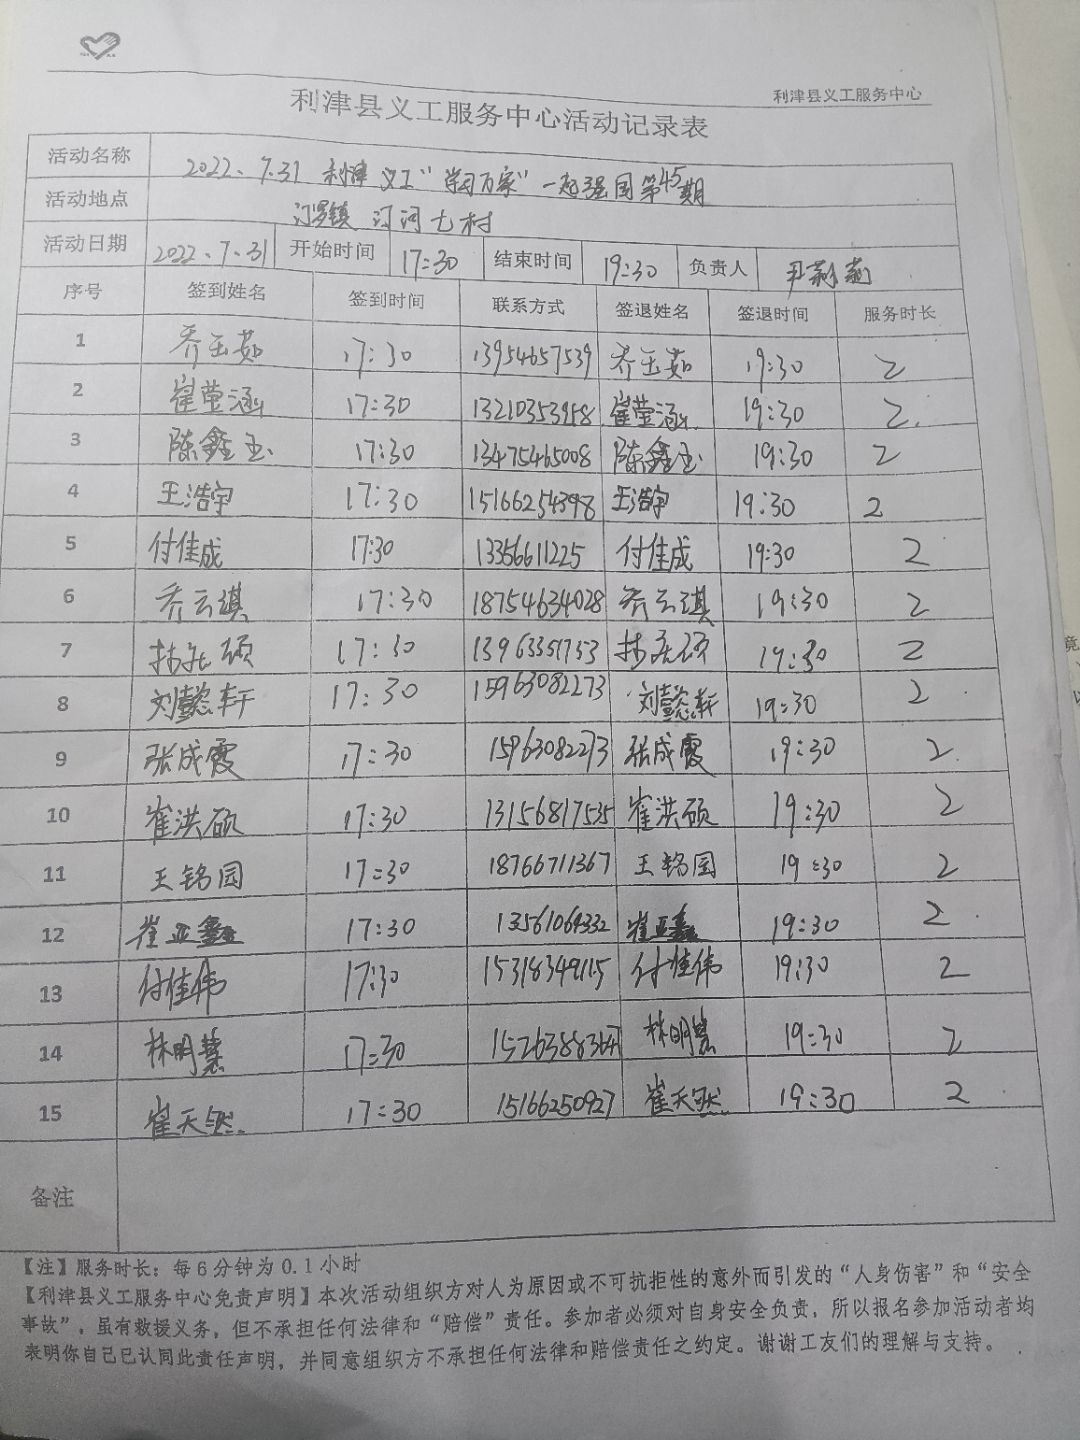 利津县义工服务中心
利津县义工服务中心活动记录表
活动名称 2022、7.31 利津义工“学习万家”一起强国第45期
活动地点 汀罗镇 汀河七村
活动日期 2022、7、31 开始时间 17:30 结束时间 19:30 负责人 尹莉莉
序号 签到姓名 签到时间 联系方式 签退姓名 签退时间 服务时长
1 乔玉茹 17:30 13954657539 乔玉茹 19:30 2
2 崔莹涵 17:30 13210353958 崔莹涵 19:30 2
3 陈鑫玉 17:30 13475465008 陈鑫玉 19:30 2
4 王浩宇 17:30 15166254398 王浩宇 19:30 2
5 付佳成 17:30 13356611225 付佳成 19:30 2
6 乔云琪 17:30 18754634028 乔云琪 19:30 2
7 17:30 13963351753 19:30 2
8 刘懿轩 17:30 15963082273 刘懿轩 19:30 2
9 张成霞 17:30 15963082273 张成霞 19:30 2
10 崔洪硕 17:30 13156817535 崔洪硕 19:30 2
11 王铭园 17:30 18766711367 王铭园 19:30 2
12 崔亚鑫 17:30 13561064332 崔亚鑫 19:30 2
13 付佳伟 17:30 15318349115 付佳伟 19:30 2
14 林明慧 17:30 林明慧 19:30 2
15 崔天然 17:30 15166250927 崔天然 19:30 2
备注
【注】服务时长：每6分钟为0.1小时
【利津县义工服务中心免责声明】本次活动组织方对人为原因或不可抗拒性的意外而引发的“人身伤害”和“安全
事故”，虽有救援义务，但不承担任何法律和“赔偿”责任。参加者必须对自身安全负责，所以报名参加活动者均
表明你自己已认同此责任声明，并同意组织方不承担任何法律和赔偿责任之约定。谢谢工友们的理解与支持。